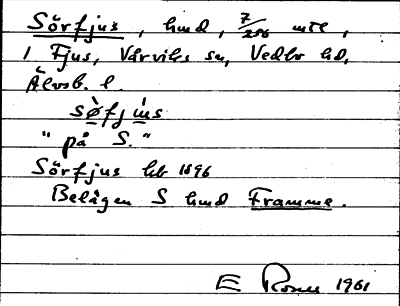 Sörfjus, hmd, 7/256 mtl,
1 Fjus, Värviks sn, Vedbo hd,
Älvsb. l.
sø̀fjùs
" på S."
Sörfjus hb 1896
Belägen S hmd Framme.
E Rosell 1961